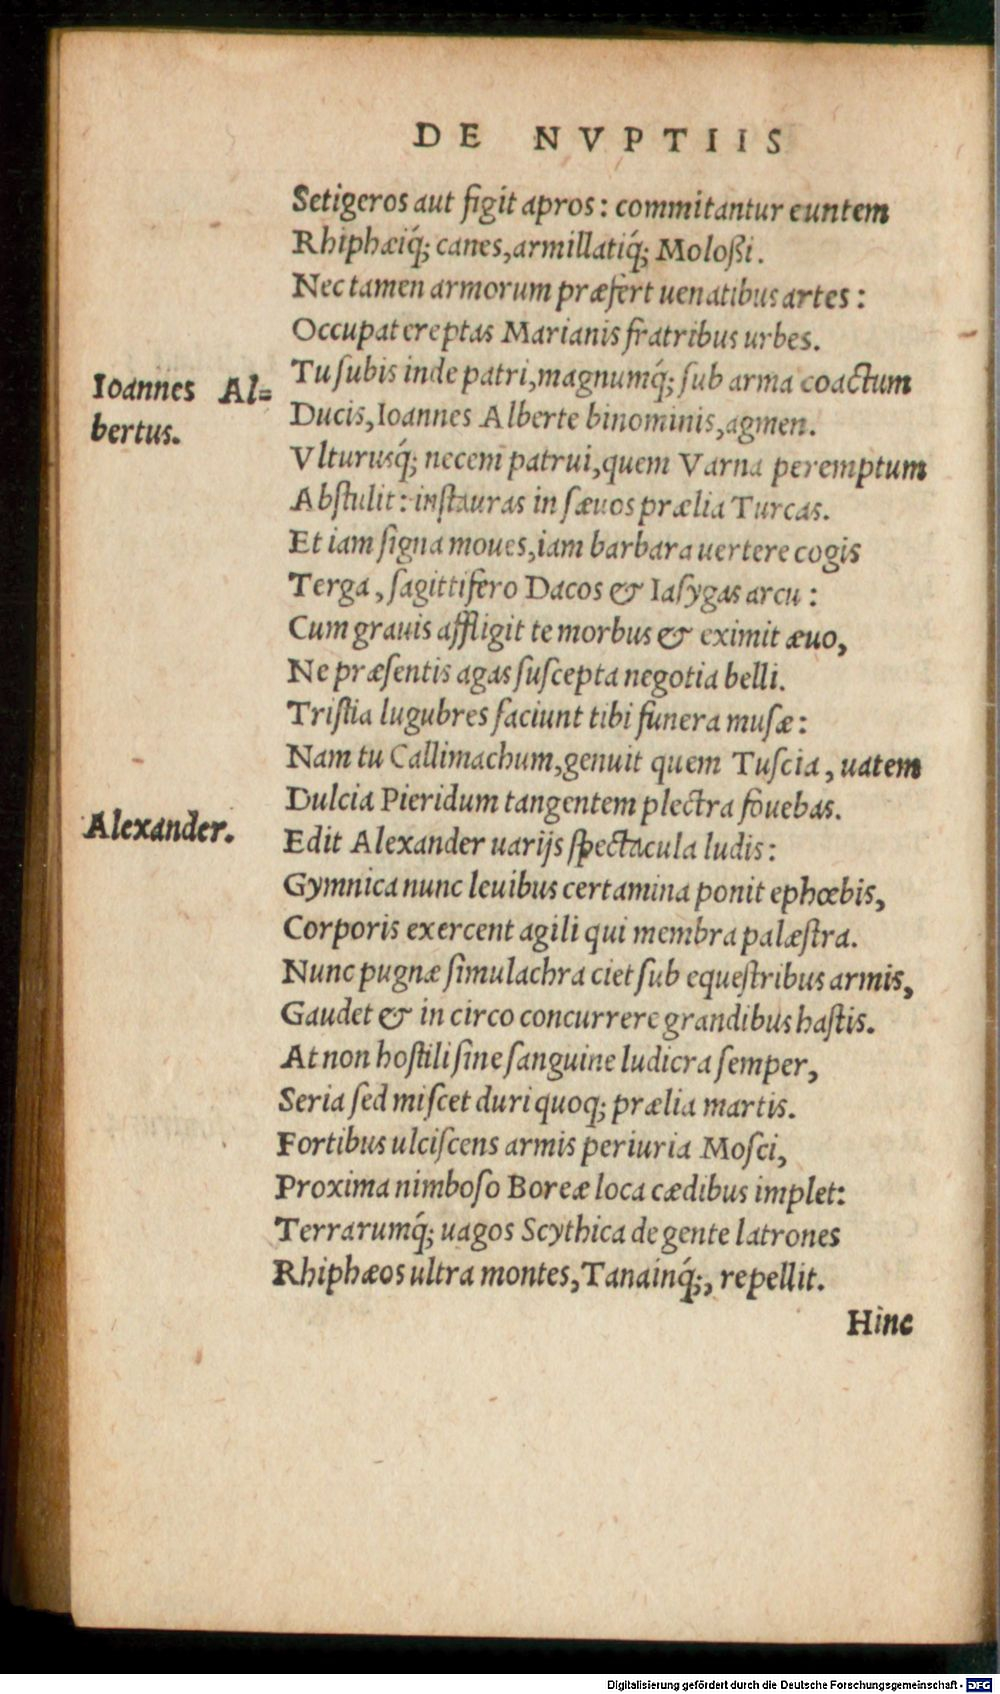 DE NVPTIIS
Setigeros aut figit apros: commitantur euntem
Rhiphæiq́; canes, armillatiq́; Moloßi.
Nec tamen armorum præfert uenatibus artes:
Occupat ereptas Marianis fratribus urbes.
Ioannes Al=
bertus.
Tu ſubis inde patri, magnumq́; ſub arma coactum
Ducis, Ioannes Alberte binominis, agmen.
Vlturusq́; necem patrui, quem Varna peremptum
Abſtulit: inſtauras in ſæuos prælia Turcas.
Et iam ſigna moues, iam barbara uertere cogis
Terga, ſagittifero Dacos & Iaſygas arcu:
Cum grauis affligit te morbus & eximit æuo,
Ne præſentis agas ſuſcepta negotia belli.
Triſtia lugubres faciunt tibi funera muſæ:
Nam tu Callimachum, genuit quem Tuſcia, uatem
Dulcia Pieridum tangentem plectra fouebas.
Alexander.
Edit Alexander uarijs ſpectacula ludis:
Gymnica nunc leuibus certamina ponit ephœbis,
Corporis exercent agili qui membra palæſtra.
Nunc pugnæ ſimulachra ciet ſub equeſtribus armis,
Gaudet & in circo concurrere grandibus haſtis.
At non hoſtili ſine ſanguine ludicra ſemper,
Seria ſed miſcet duri quoq; prælia martis.
Fortibus ulciſcens armis periuria Moſci,
Proxima nimboſo Boreæ loca cædibus implet:
Terrarumq́; uagos Scythica de gente latrones
Rhiphæos ultra montes, Tanainq́;, repellit.
Hinc
Digitalisierung gefördert durch die Deutsche Forschungsgemeinschaft - DFG